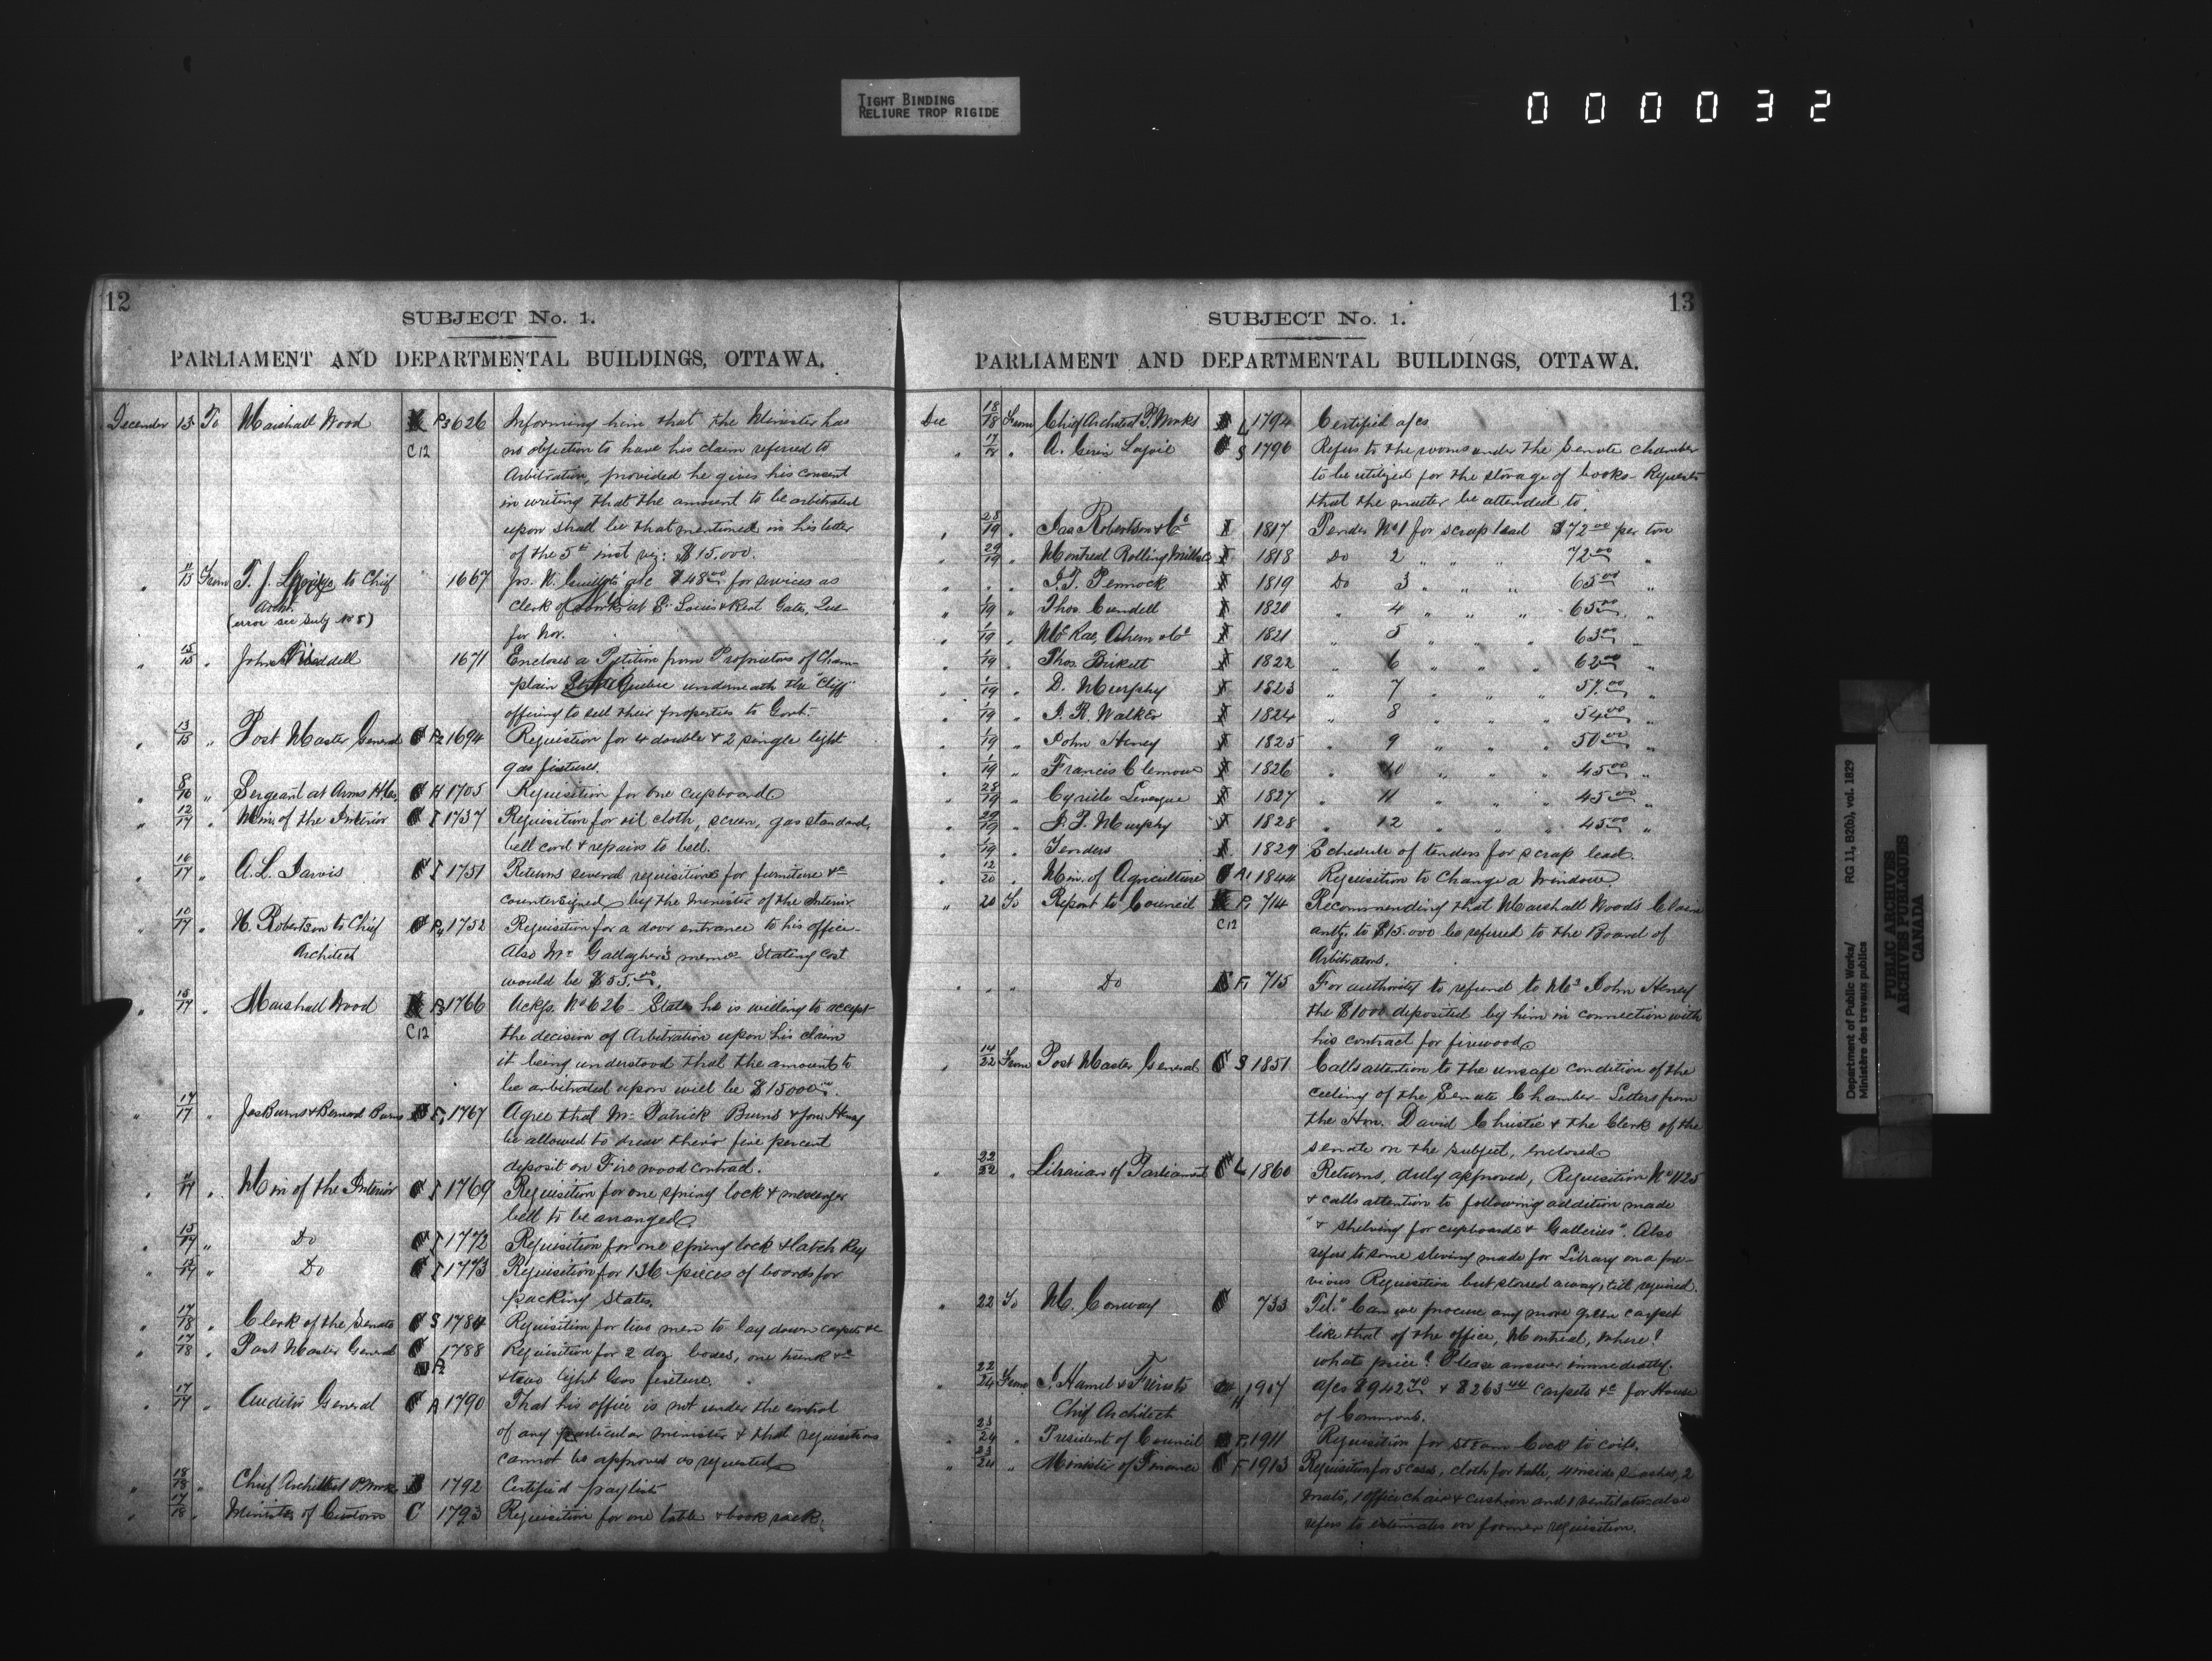 TIGHT BINDING
RELIURE TROP RIGIDE
000032
12
SUBJECT No. 1.
PARLIAMENT AND DEPARTMENTAL BUILDINGS, OTTAWA.
December 15 To Marshall Wood P3 626 Informing him that the Minister has
C12 no objection to have his claim referred to
Arbitration, provided he gives his consent
in writing that the amount to be arbitrated
upon shall be that mentioned in his letter
of the 5th inst viz: $15,000.
" 11/15 From T. J. to Chief 1667 Jos. N. a/c $48.00 for services as
Archt. Clerk of Works at St. Louis & Kent Gates, Que
(error see Subj No 8) for Nov.
" 15/15 " John 1671 Encloses a Petition from Proprietors of Cham-
plain Street Quebec underneath the "Cliff"
offering to sell their properties to Govt.
" 13/15 " Post Master General P2 1694 Requisition for 4 double & 2 single light
gas fixtures.
" " Sergeant at Arms H 1705 Requisition for one cupboard
" 12/17 " Min. of the Interior I 1737 Requisition for oil cloth, screen, gas standard,
bell cord & repairs to bell.
" 16/17 " A. L. Jarvis I 1751 Returns several requisitions for furniture &c
countersigned by the Minister of the Interior
" 10/17 " W. Robertson to Chief 1752 Requisition for a door entrance to his office-
Architect Also Mr Gallagher's memo. Stating cost
would be $55.00.
" 15/17 " Marshall Wood P3 1766 Ackgs. No 626 - States he is willing to accept
C12 the decision of Arbitration upon his claim
it being understood that the amount to
be arbitrated upon will be $15000.00.
" 17/17 " Jas Burns & Bernard Burns F1 1767 Agree that Mr Patrick Burns & Jno. Heney
be allowed to draw their five percent
deposit on Fire wood contract.
" " Min of the Interior I 1769 Requisition for one spring lock & messenger
bell to be arranged.
" 15/17 " Do I 1772 Requisition for one spring lock & latch key
" " Do I 1773 Requisition for 136 pieces of boards for
packing States.
" 17/18 " Clerk of the Senate S 1784 Requisition for two men to lay down carpets &c
" 17/18 " Post Master General 1788 Requisition for 2 doz boxes, one trunk &c
P2 & two light Gas fixture.
" 17/17 " Auditor General A 1790 That his office is not under the control
of any particular minister & that requisitions
cannot be approved as requested
" 18/18 " Chief Architect P. Works 1792 Certified paylist
" 17/18 " Minister of Customs C 1793 Requisition for one table & book rack.
13
SUBJECT No. 1.
PARLIAMENT AND DEPARTMENTAL BUILDINGS, OTTAWA.
Dec 18/18 From Chief Architect P. Works L 1794 Certified a/cs
" 17/18 " A. Gerin Lajoie S 1796 Refers to the rooms under the Senate Chamber
to be utilized for the storage of books - Requests
that the matter be attended to.
" 28/19 " Jas Robertson & Co 1817 Tender No 1 for scrap lead $72.00 per ton
" 29/19 " Montreal Rolling Mills Co 1818 Do 2 " " 72.00 "
" " " J. T. Pennock 1819 Do 3 " " " 65.00 "
" 1/19 " Thos. Cundell 1820 " 4 " " " 65.00 "
" 1/19 " McRae, Ahern & Co 1821 " 5 " " " 63.00 "
" 1/19 " Thos. Birkett 1822 " 6 " " " 62.00 "
" 1/19 " D. Murphy 1823 " 7 " " " 57.00 "
" 1/19 " J. R. Walker 1824 " 8 " " " 54.00 "
" 1/19 " John Heney 1825 " 9 " " " 50.00 "
" 1/19 " Francis Clemow 1826 " 10 " " " 45.00 "
" 28/19 " Cyrille Levesque 1827 " 11 " " " 45.00 "
" 29/19 " J. P. Murphy 1828 " 12 " " " 45.00 "
" 1/19 " Tenders 1829 Schedule of tenders for scrap lead.
" 12/20 " Min. of Agriculture A1 1844 Requisition to Change a Window.
" 20 To Report to Council P3 714 Recommending that Marshall Wood's Claim
C12 amtg. to $15.000 be referred to the Board of
Arbitrators.
" " " Do F1 715 For authority to refund to Mr John Heney
the $1000 deposited by him in connection with
his contract for firewood
" 14/22 From Post Master General S 1851 Calls attention to the unsafe condition of the
ceiling of the Senate Chamber - Letters from
the Hon. David Christie & the Clerk of the
senate on the subject, enclosed
" 22/22 " Librarian of Parliament L 1860 Returns, duly approved, Requisition No 1125
& calls attention to following addition made
"& shelving for cupboards & Galleries". Also
refers to some sleving made for Library on a pre-
vious Requisition but stored away, till required.
" 22 To M. Conway 733 Tel. "Can we procure any more green carpet
like that of the office, Montreal, where?
whats price? Please answer immediately.
" 22/24 From J. Hamel & Frères to H 1907 a/cs $942.70 & $263.44 carpets &c for House
Chief Architect of Commons.
" 23/24 " President of Council P1 1911 Requisition for Steam Cock to coils.
" 23/24 " Minister of Finance F 1913 Requisition for 5 cases, cloth for table, 4 inside sashes, 2
mats, 1 office chair & cushion and 1 ventilator also
refers to estimates on former requisition.
Department of Public Works/
Ministère des travaux publics
RG 11, B2(b), vol. 1829
PUBLIC ARCHIVES
ARCHIVES PUBLIQUES
CANADA